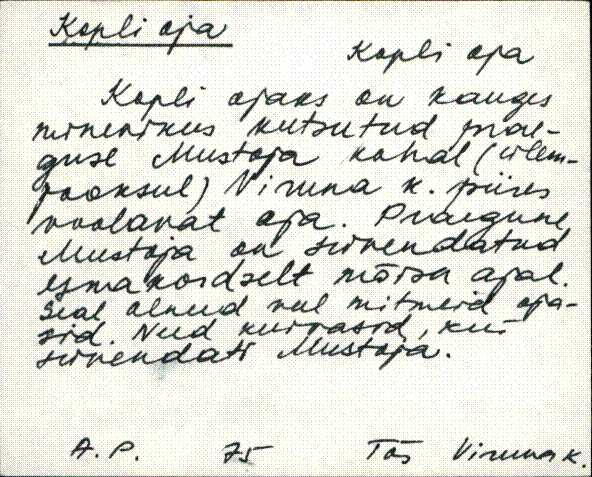 Kopli oja
Kopli oja
Kopli ojaks on kauges
minevikus kutsutud prae-
guse Mustoja kohal (ülem-
jooksul) Viruna k. piires
voolavat oja. Praegune
Mustoja on süvendatud
esmakordselt mõisa ajal.
Seal olnud vel mitmeid oja-
sid. Nud kuivasid, kui
süvendati Mustoja.
A.P. 75 Tõs Viruna k.